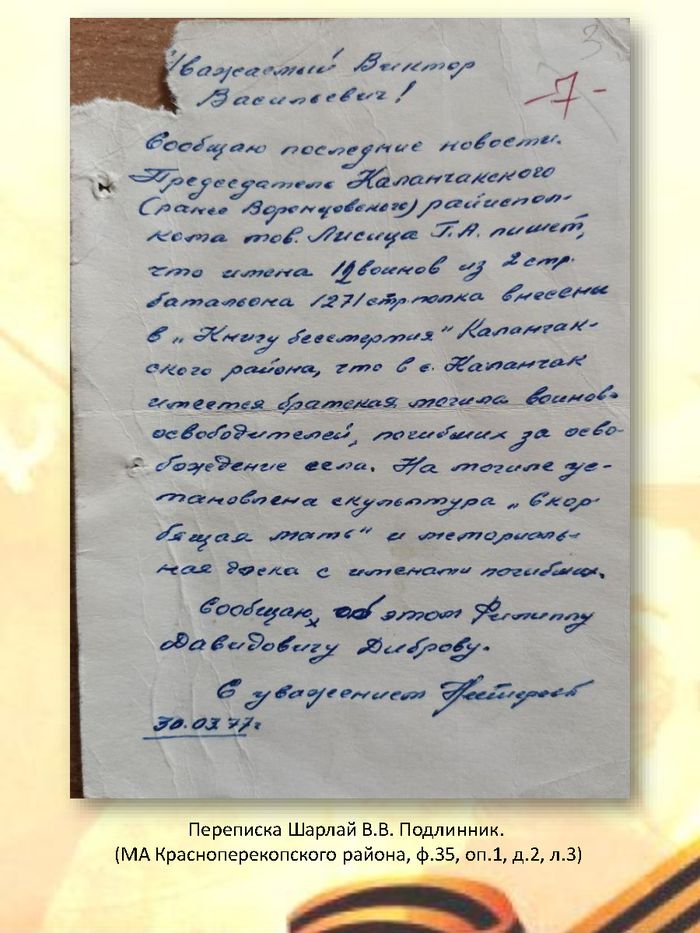 3
-7-
Уважаемый Виктор
Васильевич!
Сообщаю последние новости.
Председатель Каланчакского
(ранее Воронцовского) райиспол-
кома тов. Лисица Г.А. пишет,
что имена 12 воинов из 2 стр.
батальона 1271 стр полка внесены
в „Книгу бессмертия" Каланчак-
ского района, что в с. Каланчак
имеется братская могила воинов-
освободителей, погибших за осво-
бождение села. На могиле ус-
тановлена скульптура „Скор-
бящая мать" и мемориаль-
ная доска с именами погибших.
Сообщаю об этом Филиппу
Давидовичу Диброву.
С уважением
30.03.77г
Переписка Шарлай В.В. Подлинник.
(МА Красноперекопского района, ф.35, оп.1, д.2, л.3)